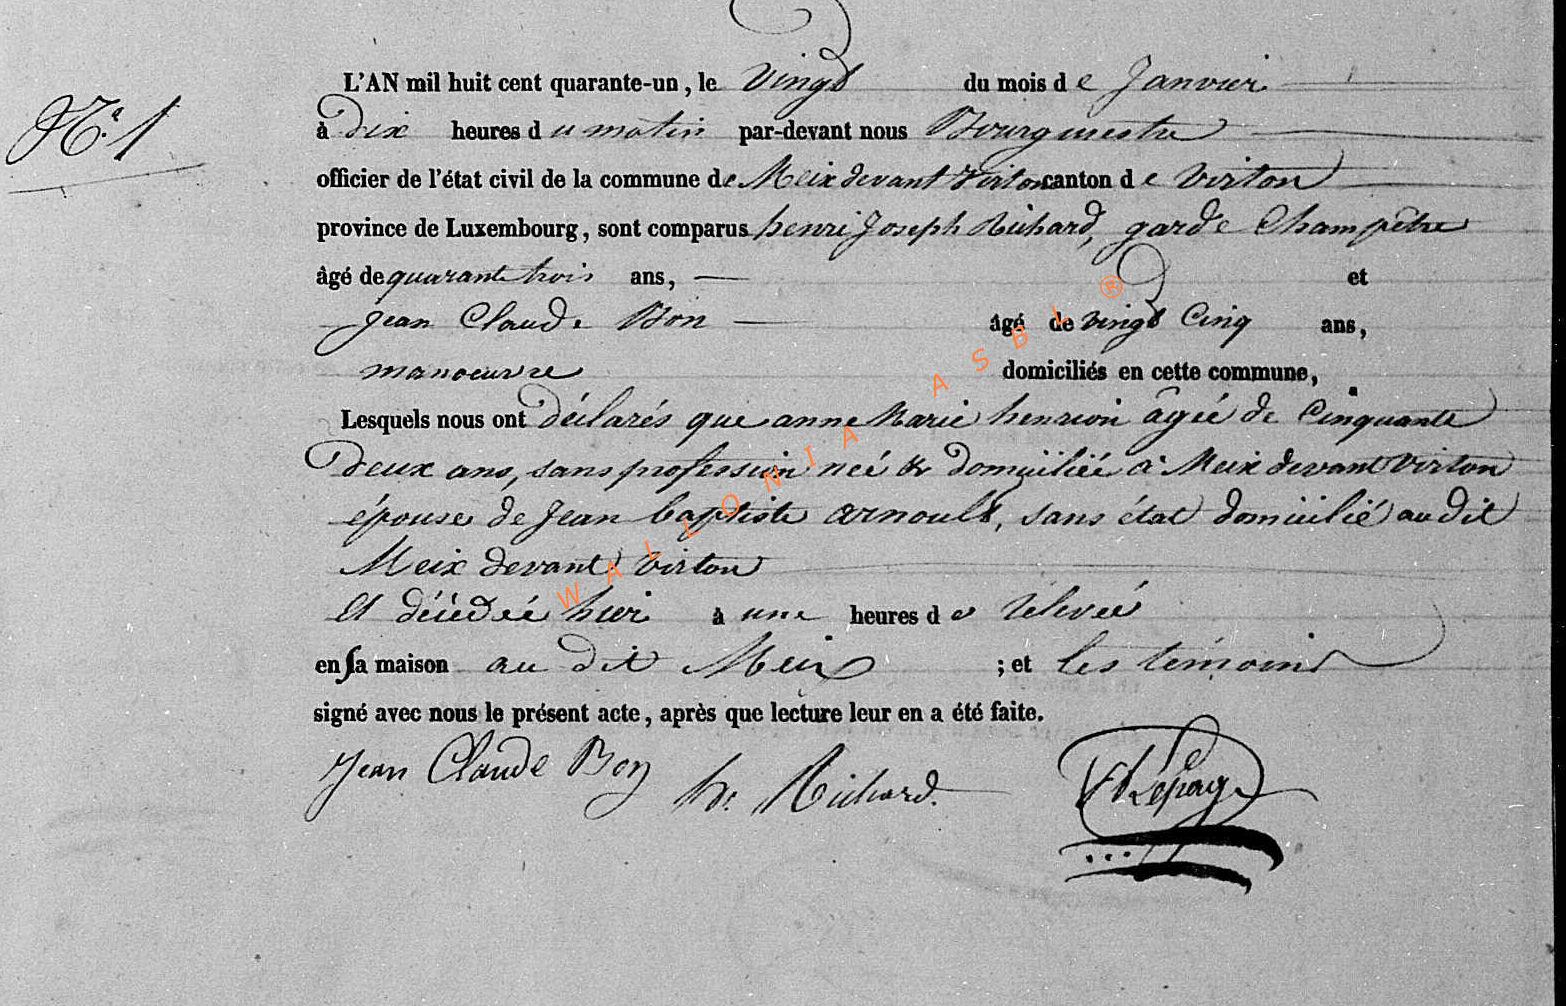 N.° 1
L'AN mil huit cent quarante-un, le vingt du mois de Janvier
à dix heures du matin par-devant nous Bourgmestre
officier de l'état civil de la commune de Meix devant Virton canton de Virton
province de Luxembourg, sont comparus henri Joseph Richard, garde Champêtre
âgé de quarante trois ans, et
Jean Claude Bon âgé de vingt Cinq ans,
manoeuvre domiciliés en cette commune,
Lesquels nous ont déclarés que anne Marie henrion âgée de Cinquante
deux ans, sans profession neé & domiciliée à Meix devant Virton
épouse de Jean baptiste arnould, sans état domicilié au dit
Meix devant Virton
Et décédée hier à une heures de relevée
en sa maison au dit Meix ; et les témoins
signé avec nous le présent acte, après que lecture leur en a été faite.
Jean Claude Bon h. Richard. Lepage
WALLONIA ASBL ®